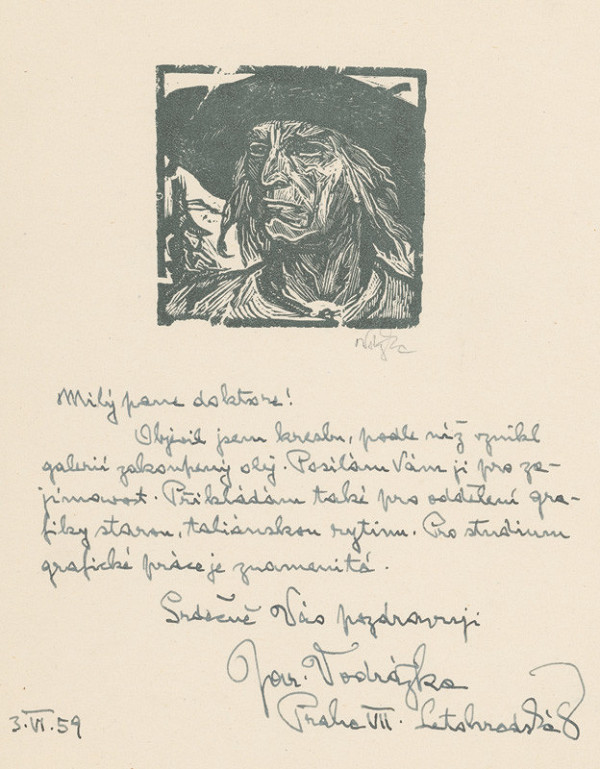 Milý pane doktore!
Objevil jsem kresbu, podle níž vznikl
galerií zakoupený olej. Posílám Vám ji pro za-
jímavost. Přikládám také pro oddělení gra-
fiky starou, taliánskou rytinu. Pro studium
grafické práce je znamenitá.
Srdečně Vás pozdravuji
Jar. Vodrážka
3.VI.59 Praha VII. Letohradská